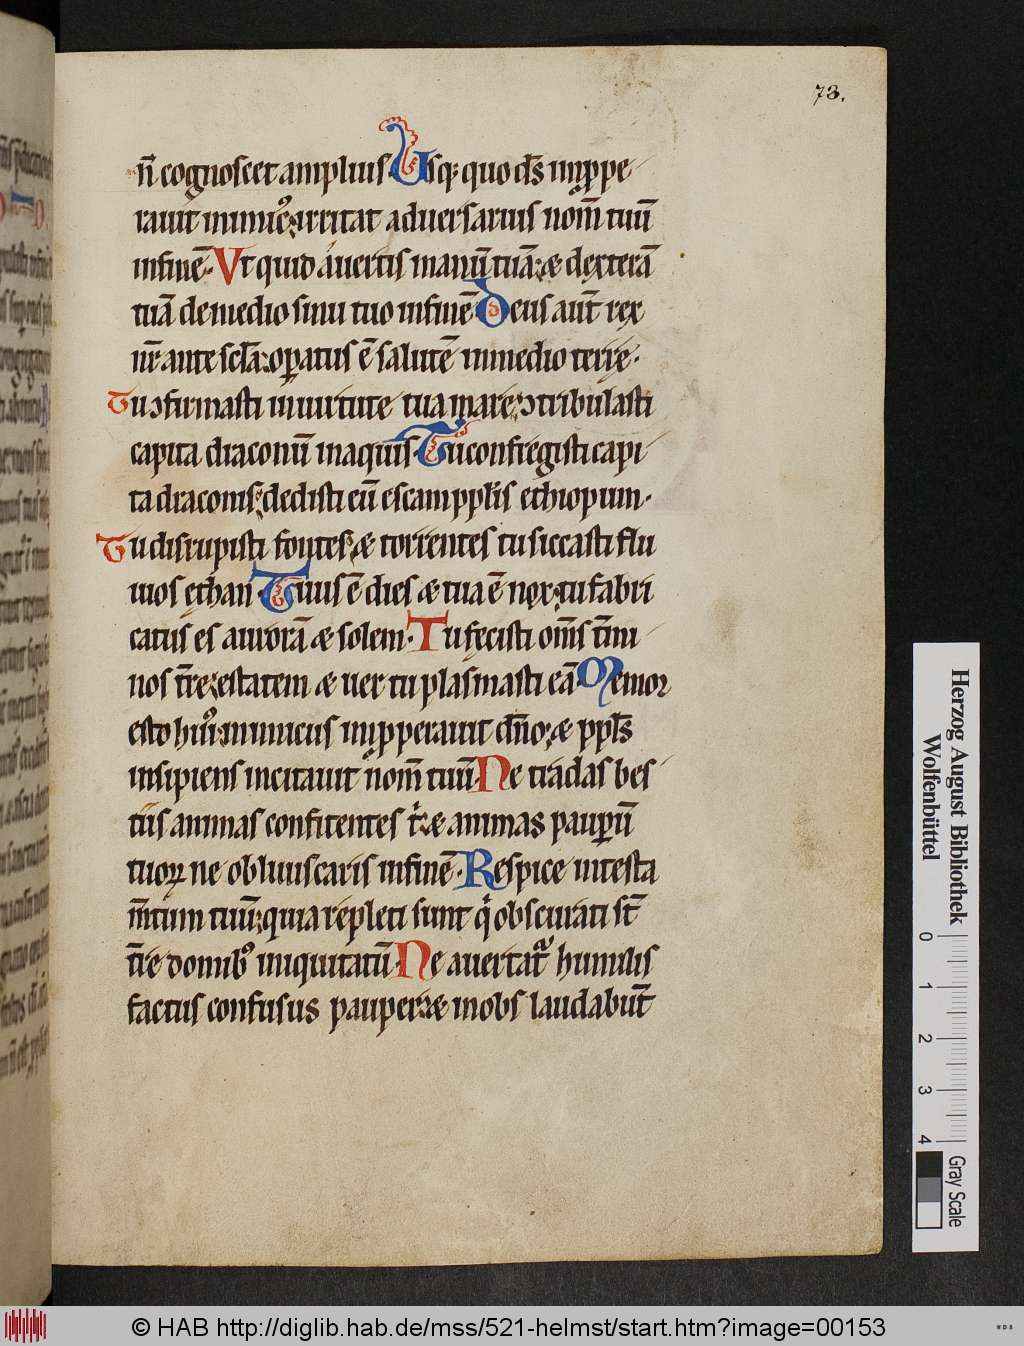 73.
n̄ cognoscet amplius. Usq; quo d̄s imppe
rauit inimic᾽ irritat aduersarius nom̄ tuū
in finē. Vt quid auertis manū tuā: & dexterā
tuā de medio sinu tuo in finē. Deus aut̄ rex
nr̄ ante scl̄a: opatus ē salutē in medio terre.
Tu ↄfirmasti in uirtute tua mare: ↄtribulasti
capita draconū in aquis. Tu confregisti capi
ta draconis: dedisti eū escam pplīs ethiopum.
Tu disrupisti fontes & torrentes tu siccasti flu
uios ethan. Tuus ē dies & tua ē nox: tu fabri
catus es aurorā & solem. Tu fecisti om̄s t̄mi
nos t̄re: estatem & uer tu plasmasti eā. Memor
esto hui᾽: inimicus impperauit dn̄o: & ppl̄s
insipiens incitauit nom̄ tuū. Ne tradas bes
tiis animas confitentes t': & animas paupum̄
tuoꝝ ne obliuiscaris in finē. Respice in testa
m̄tum tuū: quia repleti sunt q' obscurati st̄
t̄re domib᾽ iniquitatū. Ne auertat᾽ humilis
factus confusus pauper: & inobs laudabūt
Herzog August Bibliothek
Wolfenbüttel
0 1 2 3 4
Gray Scale
© HAB http://diglib.hab.de/mss/521-helmst/start.htm?image=00153